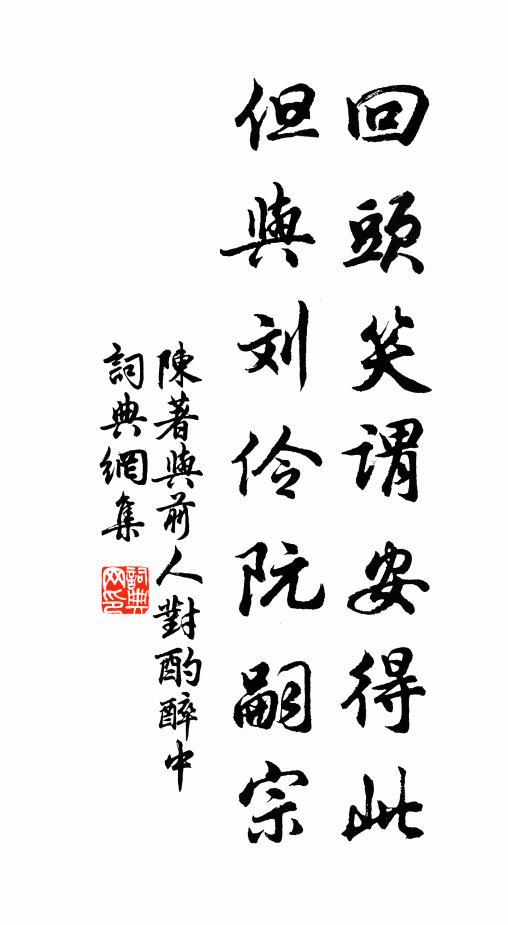 回頭笑謂安得此
但與刘伶阮嗣宗
陳著與前人對酌醉中
詞典網集
詞典网印